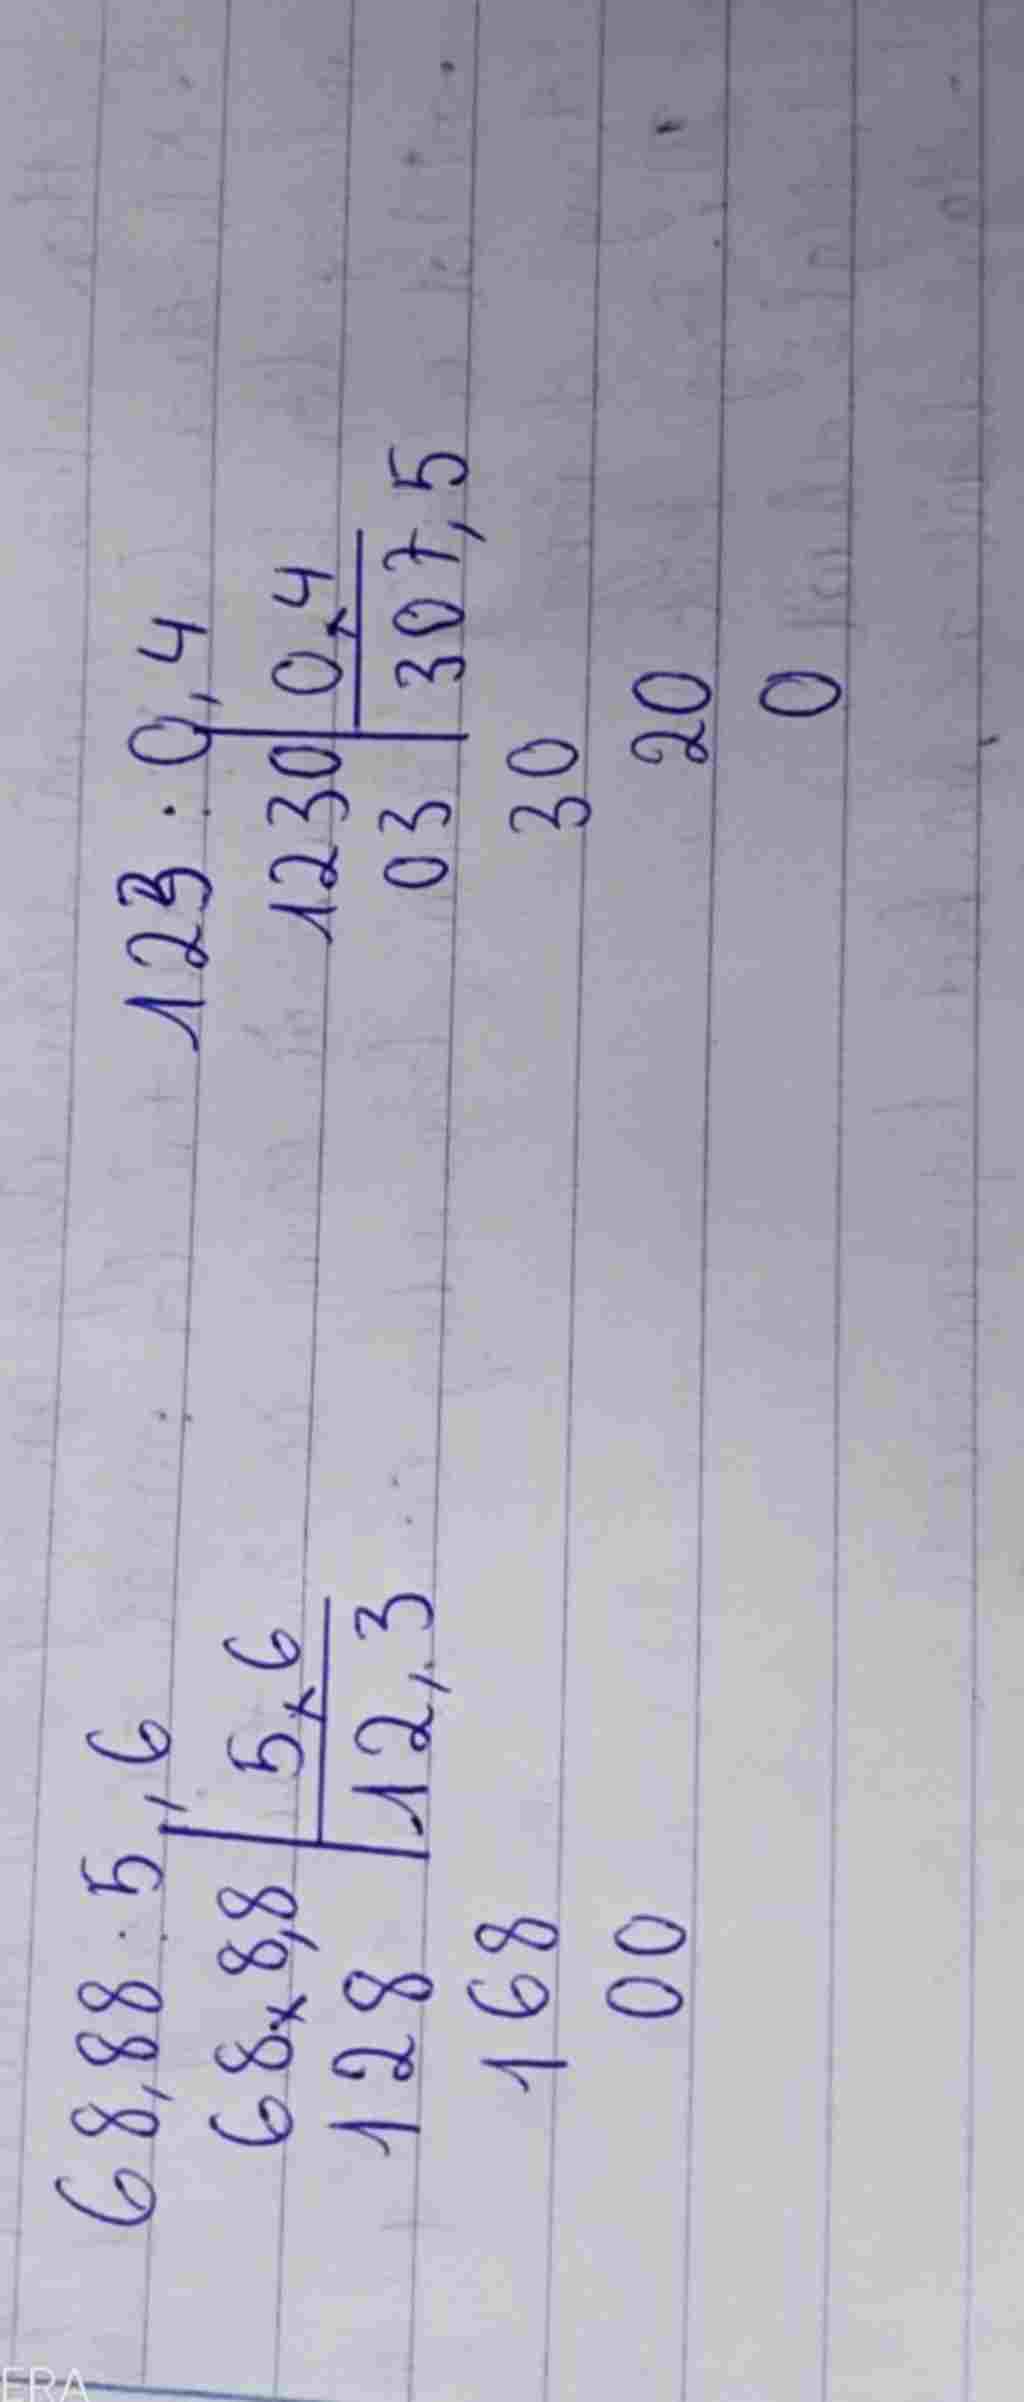 68,88 : 5,6
68,8,8 | 5,6
128 | 12,3
168
00
123 : 0,4
1230 | 0,4
03 | 307,5
30
20
0
ERA